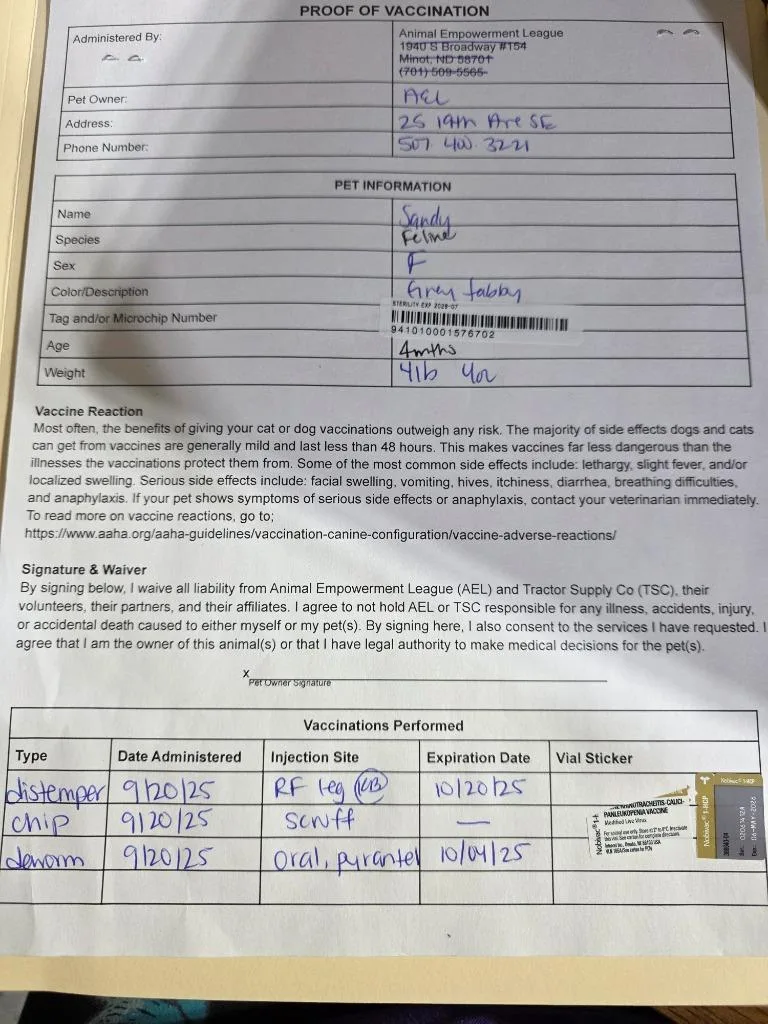 PROOF OF VACCINATION
Administered By:
Animal Empowerment League
1940 S Broadway #154
Minot, ND 58701
(701) 509-5565
Pet Owner: AEL
Address: 25 19th Ave SE
Phone Number: 507. 400. 3221
PET INFORMATION
Name Sandy
Species Feline
Sex F
Color/Description Grey tabby
STERILITY EXP 2028-07
Tag and/or Microchip Number
941010001576702
Age 4mths
Weight 4lb 4oz
Vaccine Reaction
Most often, the benefits of giving your cat or dog vaccinations outweigh any risk. The majority of side effects dogs and cats
can get from vaccines are generally mild and last less than 48 hours. This makes vaccines far less dangerous than the
illnesses the vaccinations protect them from. Some of the most common side effects include: lethargy, slight fever, and/or
localized swelling. Serious side effects include: facial swelling, vomiting, hives, itchiness, diarrhea, breathing difficulties,
and anaphylaxis. If your pet shows symptoms of serious side effects or anaphylaxis, contact your veterinarian immediately.
To read more on vaccine reactions, go to;
https://www.aaha.org/aaha-guidelines/vaccination-canine-configuration/vaccine-adverse-reactions/
Signature & Waiver
By signing below, I waive all liability from Animal Empowerment League (AEL) and Tractor Supply Co (TSC), their
volunteers, their partners, and their affiliates. I agree to not hold AEL or TSC responsible for any illness, accidents, injury,
or accidental death caused to either myself or my pet(s). By signing here, I also consent to the services I have requested. I
agree that I am the owner of this animal(s) or that I have legal authority to make medical decisions for the pet(s).
x
Pet Owner Signature
Vaccinations Performed
Type Date Administered Injection Site Expiration Date Vial Sticker
distemper 9/20/25 RF leg 10/20/25
chip 9/20/25 Scruff —
deworm 9/20/25 oral, pyrantel 10/04/25
CALICI-
PANLEUKOPENIA VACCINE
Modified Live Virus
Nobivac® 1-HCP
Nobivac® 1-HCP